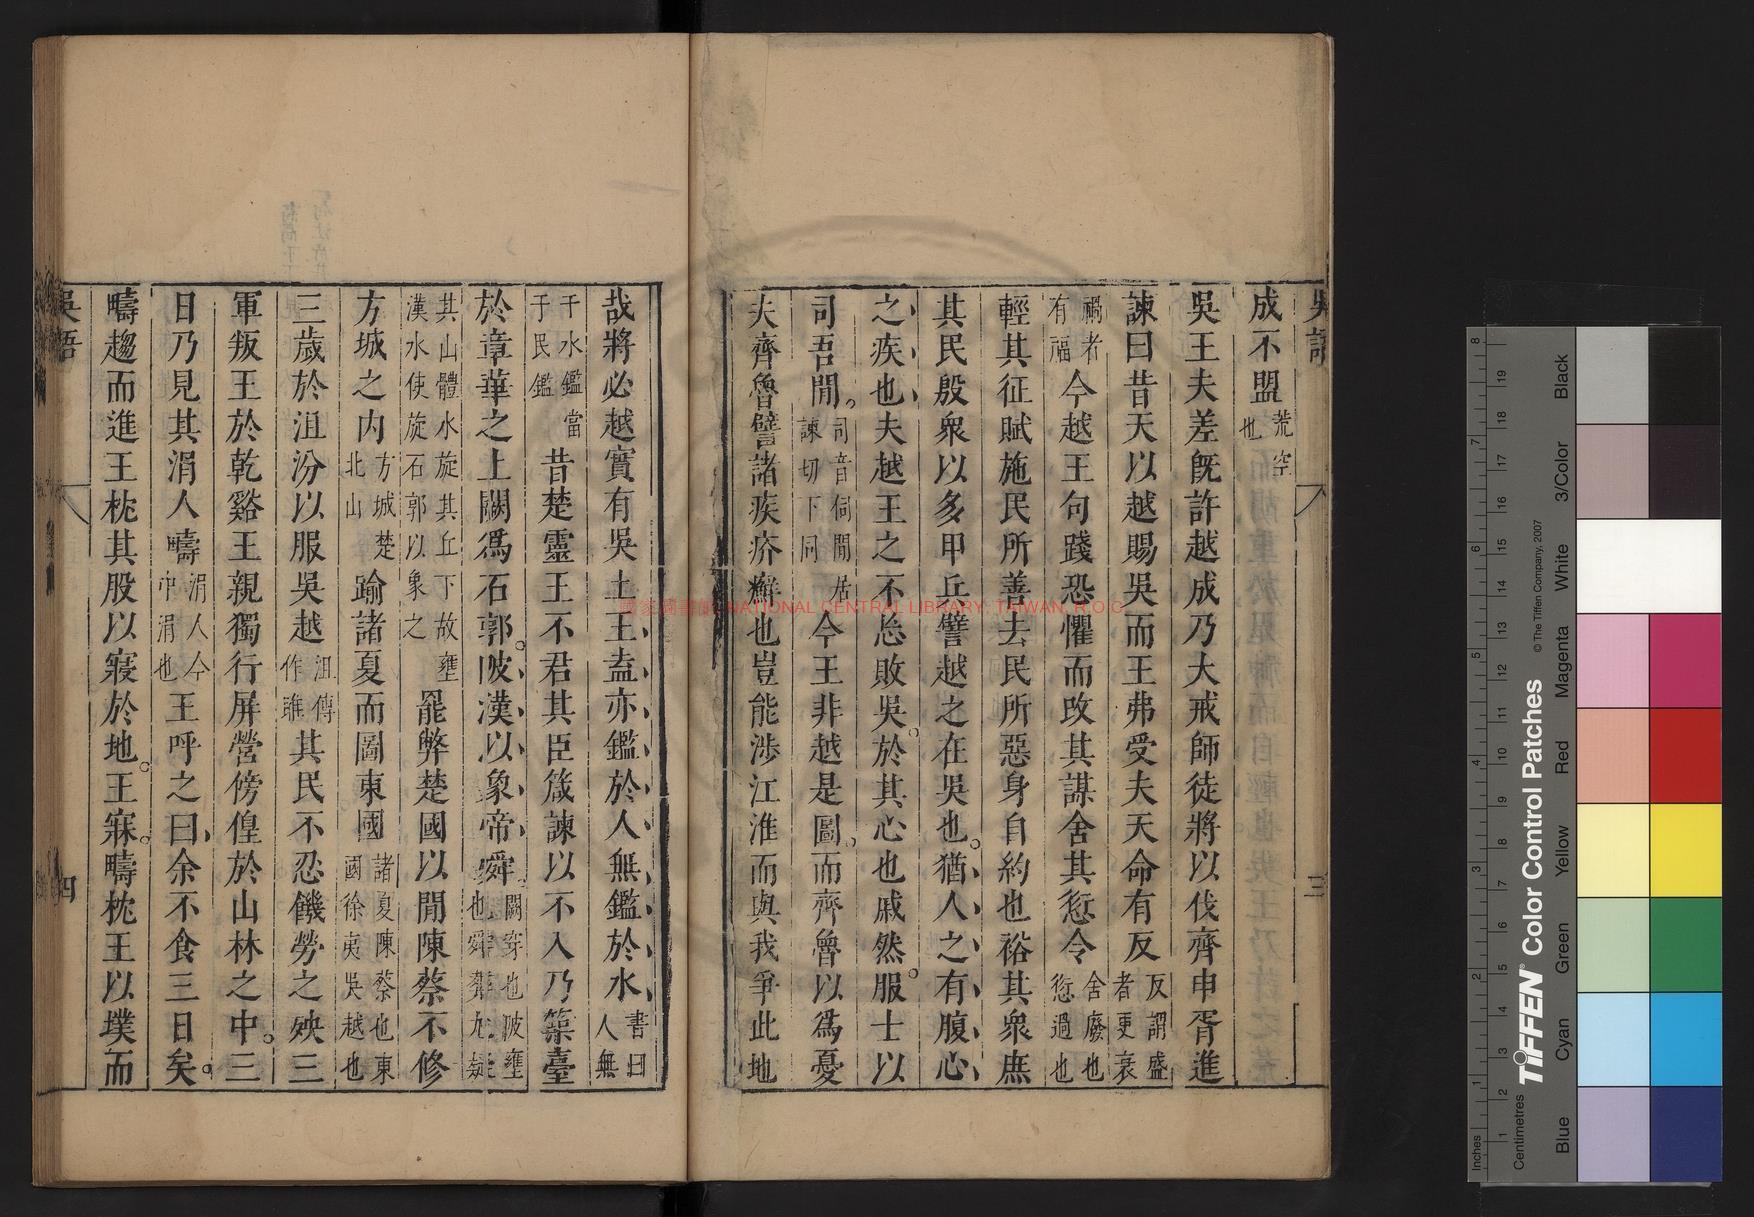 吳語
三
成不盟荒空也
吳王夫差旣許越成乃大戒師徒將以伐齊申胥進
諫曰昔天以越賜吳而王弗受夫天命有反反謂盛者更衰
禍者有福今越王句踐恐懼而改其謀舍其愆令舍廢也愆過也
輕其征賦施民所善去民所惡身自約也裕其衆庶
其民殷衆以多甲兵譬越之在吳也猶人之有腹心
之疾也夫越王之不忘敗吳於其心也戚然服士以
司吾閒司音伺閒居諫切下同今王非越是圖而齊魯以爲憂
夫齊魯譬諸疾疥癬也豈能涉江淮而與我爭此地
哉將必越實有吳土王盍亦鑑於人無鑑於水書曰人無
于水鑑當于民鑑昔楚靈王不君其臣箴諫以不入乃築臺
於章華之上闕爲石郭陂漢以象帝舜闕穿也陂壅也舜葬九疑
其山體水旋其丘下故壅漢水使旋石郭以象之罷弊楚國以閒陳蔡不修
方城之内方城楚北山踰諸夏而圖東國諸夏陳蔡也東國徐夷吳越也
三歲於沮汾以服吳越沮傳作雎其民不忍饑勞之殃三
軍叛王於乾谿王親獨行屏營傍偟於山林之中三
日乃見其涓人疇涓人今中涓也王呼之曰余不食三日矣
疇趨而進王枕其股以寢於地王寐疇枕王以墣而
吳語
四
國家圖書館 NATIONAL CENTRAL LIBRARY, TAIWAN, R.O.C
Inches
Centimetres
TIFFEN Color Control Patches
© The Tiffen Company, 2007
Blue
Cyan
Green
Yellow
Red
Magenta
White
3/Color
Black